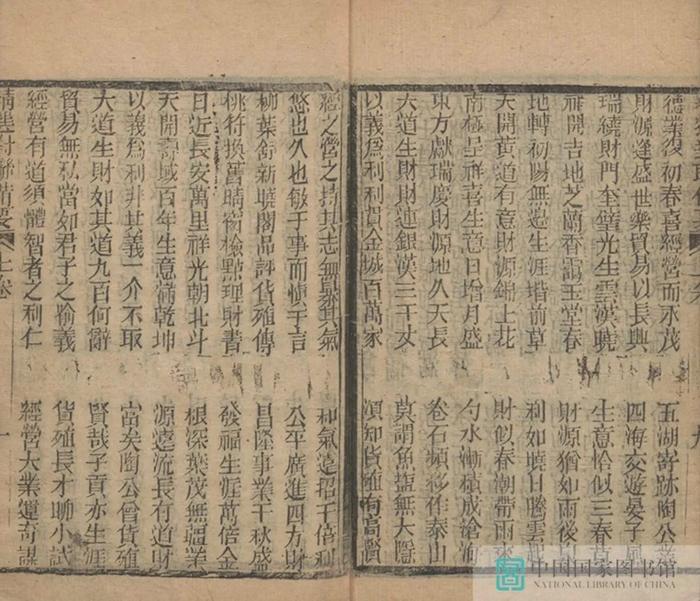 德業復初春喜經營而永茂
財源逢盛世樂貿易以長興
瑞繞財門奎璧光生雲漢曉
祥開吉地芝蘭香靄玉堂春
地轉初陽無邊生涯堦前草
天開黃道有意財源錦上花
南極呈祥喜生意日增月盛
東方獻瑞慶財源地久天長
大道生財財連銀漢三千丈
以義爲利利貫金城百萬家
五湖寄跡陶公業
四海交遊晏子風
生意恰似三春草
財源猶如雨後
利如曉日騰雲
財似春潮帶雨來
勺水漸積成滄海
卷石頻移作泰山
莫謂魚鹽無大隱
須知貨殖有高賢
經之營之持其志無暴其氣
悠也久也敏于事而慎于言
柳葉舒新曉閣品評貨殖傳
桃符換舊晴窗檢點理財書
日近長安萬里祥光朝北斗
天開壽域百年生意滿乾坤
以義爲利非其義一介不取
大道生財如其道九百何辭
貿易無私當如君子之喻義
經營有道須體智者之利仁
和氣遠招千倍利
公平廣進四方財
昌隆事業千秋盛
發福生涯萬倍金
根深葉茂無疆業
源遠流長有道財
富矣陶公曾貨殖
賢哉子貢亦生涯
貨殖長才聊小試
經營大業運奇謀
對聯備要 上卷
中国国家图书馆
NATIONAL LIBRARY OF CHINA